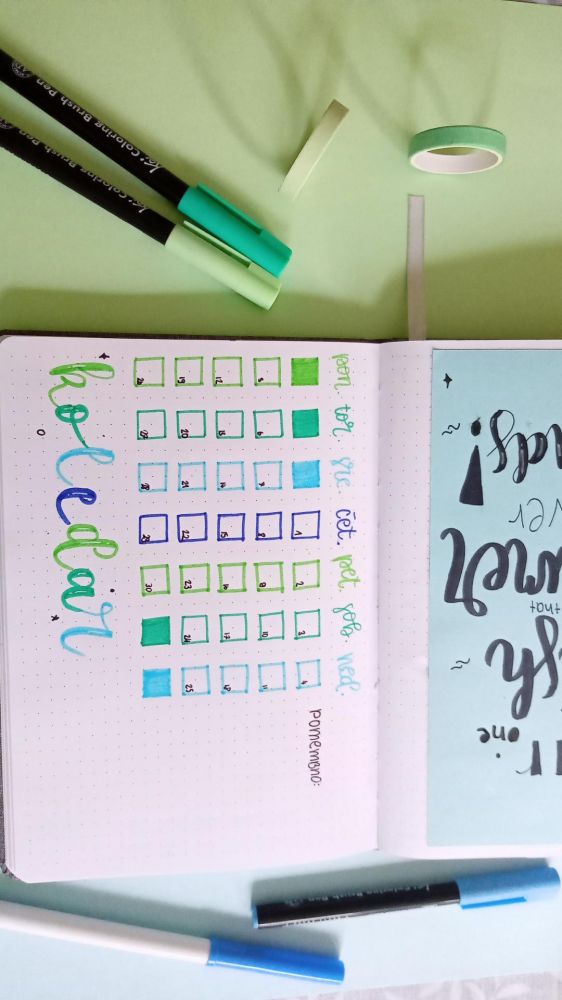 pon. tor. sre. čet. pet. sob. ned.
pomembno:
1 2 3 4
5 6 7 8 9 10 11
12 13 14 15 16 17 18
19 20 21 22 23 24 25
26 27 28 29 30
koledar
one
that
Coloring Brush Pen
Coloring Brush Pen
Coloring Brush Pen